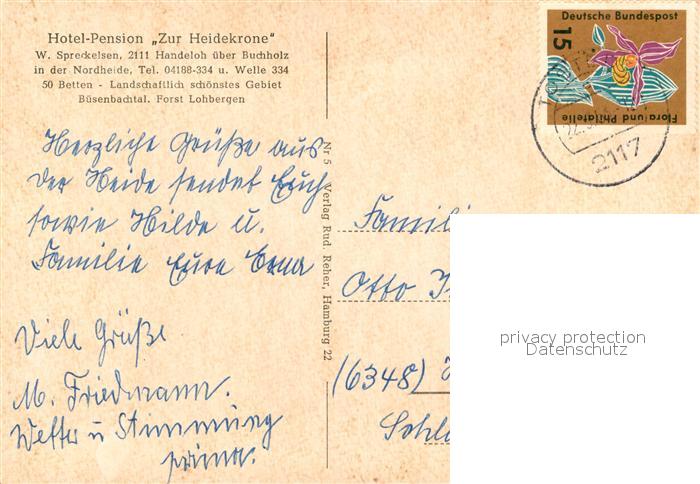 Hotel-Pension „Zur Heidekrone“
W. Spreckelsen, 2111 Handeloh über Buchholz
in der Nordheide, Tel. 04188-334 u. Welle 334
50 Betten - Landschaftlich schönstes Gebiet
Büsenbachtal. Forst Lohbergen
Herzliche Grüße aus
der Heide sendet Euch
sowie Hilde u.
Familie Eure Erna
Viele Grüße
M. Friedmann.
Wetter u Stimmung
prima.
Nr 5 Verlag Rud. Reher, Hamburg 22
Deutsche Bundespost
15
Flora und Philatelie
2117
Famili
Otto
(6348)
privacy protection
Datenschutz